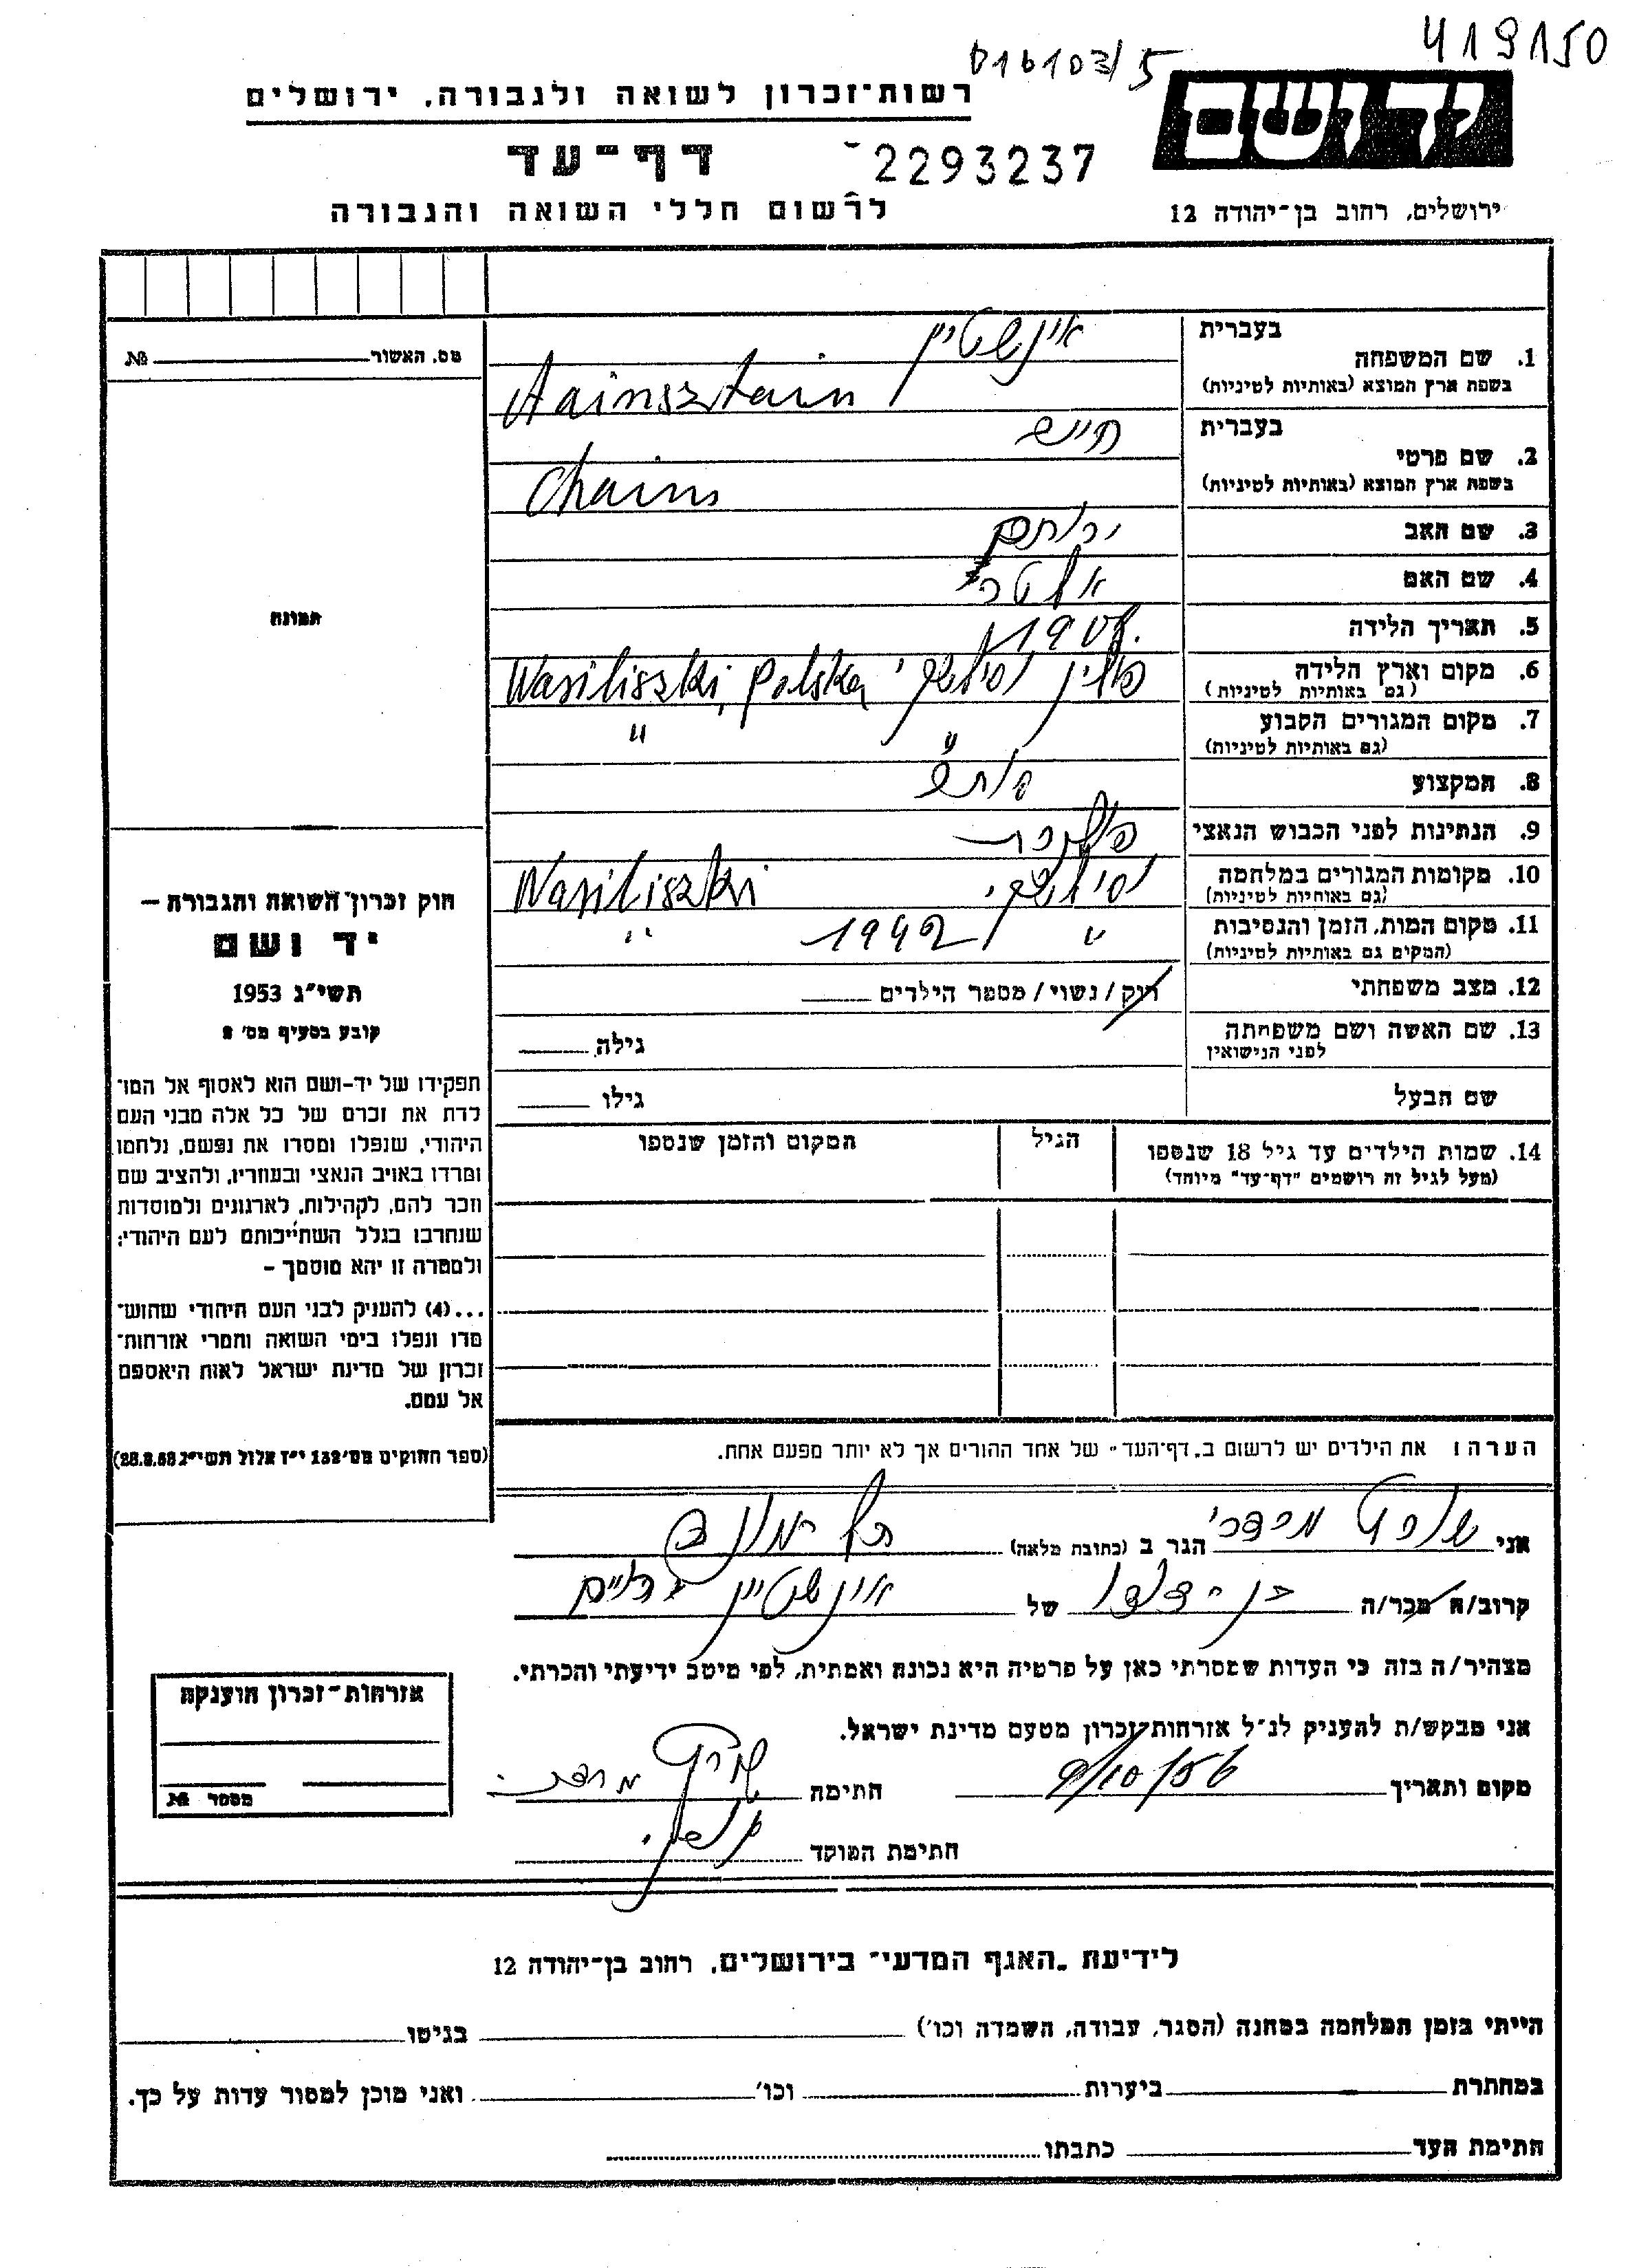 419150
016103/5
יד ושם
רשות־זכרון לשואה ולגבורה, ירושלים
דף־עד 2293237
ירושלים, רחוב בן־יהודה 12
לרשום חללי השואה והגבורה
בעברית אינשטיין
1. שם המשפחה
בשפת ארץ המוצא (באותיות לטיניות) Aainsztain
מס. האשור №
בעברית חיים
2. שם פרטי
בשפת ארץ המוצא (באותיות לטיניות) Chaim
3. שם האב ירוחם
4. שם האם
5. תאריך הלידה
6. מקום וארץ הלידה פולין וסילישקי Wasiliszki, Polska
(גם באותיות לטיניות)
7. מקום המגורים הקבוע " "
(גם באותיות לטיניות)
8. המקצוע
9. הנתינות לפני הכבוש הנאצי פולנית
10. מקומות המגורים במלחמה וסילישקי Wasiliszki
(גם באותיות לטיניות)
11. מקום המות, הזמן והנסיבות " 1942 "
(המקום גם באותיות לטיניות)
12. מצב משפחתי רוק/נשוי/מספר הילדים
13. שם האשה ושם משפחתה גילה
לפני הנישואין
שם הבעל גילו
14. שמות הילדים עד גיל 18 שנספו הגיל המקום והזמן שנספו
(מעל לגיל זה רושמים "דף־עד" מיוחד)
הערה: את הילדים יש לרשום ב"דף־העד" של אחד ההורים אך לא יותר מפעם אחת.
תמונה
חוק זכרון השואה והגבורה –
יד ושם
תשי"ג 1953
קובע בסעיף מס' 2
תפקידו של יד-ושם הוא לאסוף אל המו־
לדת את זכרם של כל אלה מבני העם
היהודי, שנפלו ומסרו את נפשם, נלחמו
ומרדו באויב הנאצי ובעוזריו, ולהציב שם
וזכר להם, לקהילות, לארגונים ולמוסדות
שנחרבו בגלל השתייכותם לעם היהודי;
ולמטרה זו יהא מוסמך –
...(4) להעניק לבני העם היהודי שהוש־
מדו ונפלו בימי השואה והמרי אזרחות־
זכרון של מדינת ישראל לאות היאספם
אל עמם.
(ספר החוקים מס' 132 י"ז אלול תשי"ג 28.8.53)
אני הגר ב (כתובת מלאה)
קרוב/ה מכר/ה בן־דודו של אינשטיין חיים
מצהיר/ה בזה כי העדות שמסרתי כאן על פרטיה היא נכונה ואמתית, לפי מיטב ידיעתי והכרתי.
אני מבקש/ת להעניק לנ"ל אזרחות־זכרון מטעם מדינת ישראל.
מקום ותאריך חתימה
חתימת הפוקד
אזרחות־זכרון הוענקה
מספר №
לידיעת "האגף המדעי" בירושלים, רחוב בן־יהודה 12
הייתי בזמן המלחמה במחנה (הסגר, עבודה, השמדה וכו') בגיטו
במחתרת ביערות וכו' ואני מוכן למסור עדות על כך.
חתימת העד כתבתו